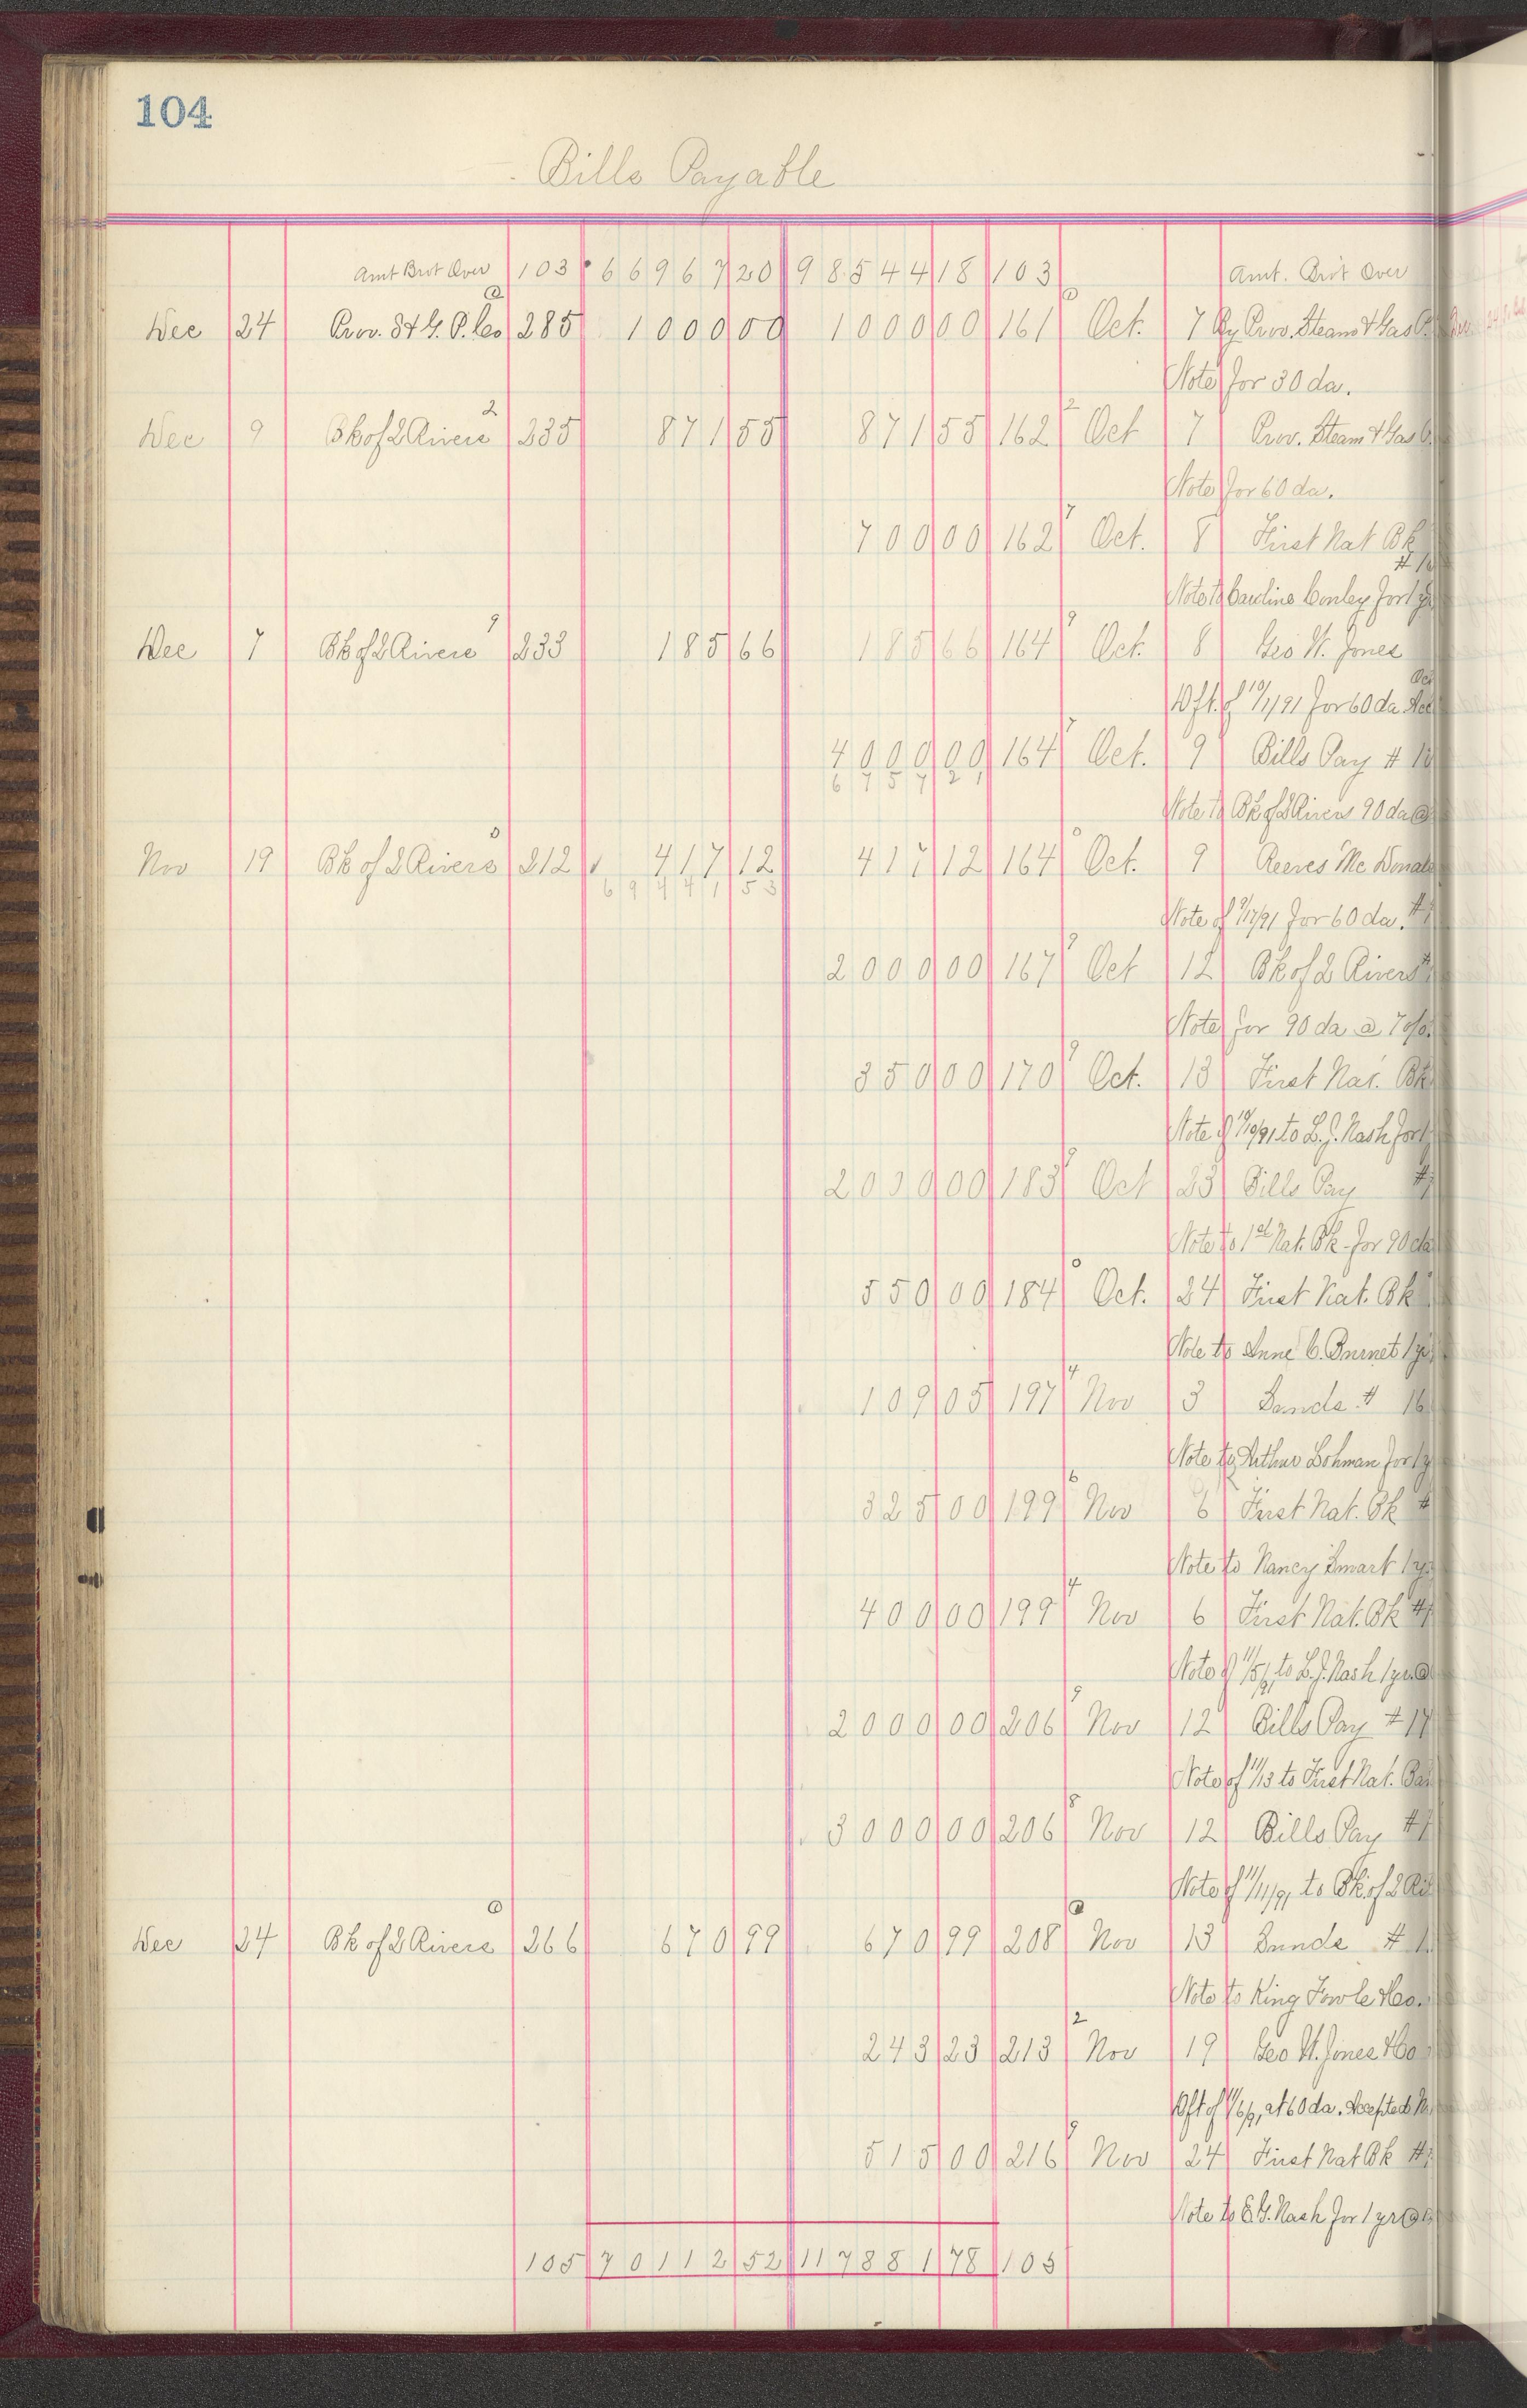 104
Bills Payable
Amt Brot Over 103 66967 20 98544 18 103 Amt. Brot Over
Dec 24 Prov. St & G. P. Co 285 1000 00 1000 00 161 Oct. 7 By Prov. Steam & Gas
Note for 30 da.
Dec 9 Bk of 2 Rivers 235 871 55 871 55 162 Oct 7 Prov. Steam & Gas
Note for 60 da.
700 00 162 Oct. 8 First Nat Bk
Note to Caroline Conley for 1 yr
Dec 7 Bk of 2 Rivers 233 185 66 185 66 164 Oct. 8 Geo W. Jones
Dft. of 10/1/91 for 60 da
4000 00 164 Oct. 9 Bills Pay #
6 7 5 7 2 1
Note to Bk of 2 Rivers 90 da @
Nov 19 Bk of 2 Rivers 212 417 12 417 12 164 Oct. 9 Reeves Mc Donald
69441 53
Note of 9/17/91 for 60 da. #
2000 00 167 Oct 12 Bk of 2 Rivers
Note for 90 da @ 7 o/o
350 00 170 Oct. 13 First Nat. Bk
Note of 10/9/91 to L. J. Nash for
2000 00 183 Oct 23 Bills Pay #
Note to 1st Nat. Bk. for 90 da
550 00 184 Oct. 24 First Nat. Bk
Note to Anne C. Burnet 1 yr
109 05 197 Nov 3 Sunds # 16
Note to Arthur Lohman for 1 y
325 00 199 Nov 6 First Nat. Bk #
Note to Nancy Smart 1 yr
400 00 199 Nov 6 First Nat. Bk #
Note of 11/5/91 to L. J. Nash 1 yr. @
2000 00 206 Nov 12 Bills Pay # 17
Note of 11/13 to First Nat. Ba
3000 00 206 Nov 12 Bills Pay #
Note of 11/11/91 to Bk of 2 Ri
Dec 24 Bk of 2 Rivers 266 670 99 670 99 208 Nov 13 Sunds #
Note to King Fowle & Co.
243 23 213 Nov 19 Geo W. Jones & Co
Dft of 11/6/91 at 60 da. Accepted
515 00 216 Nov 24 First Nat Bk #
Note to E. G. Nash for 1 yr @
105 70112 52 117881 78 105